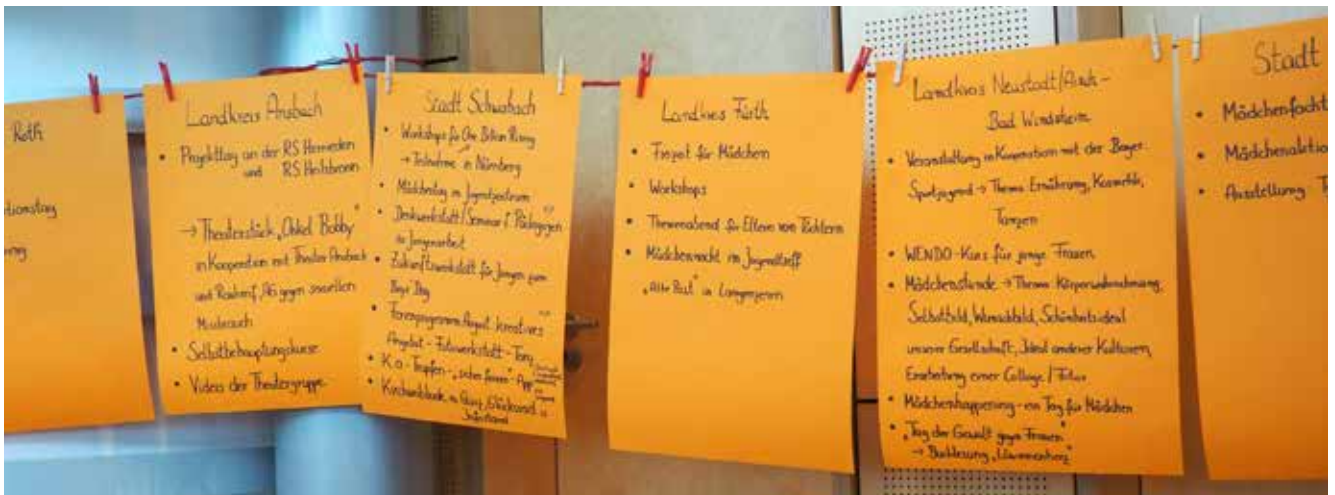 Roth
tionstag
Landkreis Ansbach
• Projekttag an der RS Herrieden
und RS Heilsbronn
→ Theaterstück „Onkel Bobby"
in Kooperation mit Theater Ansbach
und Rauhreif, AG gegen sexuellen
Missbrauch
• Selbstbehauptungskurse
• Video der Theatergruppe
Stadt Schwabach
• Workshops für One Billion Rising
→ Teilnahme in Nürnberg
• Mädchentag im Jugendzentrum
• Denkwerkstatt/Seminar f. Pädagogen
in Jungenarbeit
• Zukunftswerkstatt für Jungen zum
Boys' Day
• Ferienprogramm August: kreatives
Angebot - Fotowerkstatt - Tanz
• K.o.-Tropfen - „sicher feiern" - App
• Kirchweihbude, Quiz, Glücksrad
Landkreis Fürth
• Freizeit für Mädchen
• Workshops
• Themenabend für Eltern von Töchtern
• Mädchennacht im Jugendtreff
„Alte Post" in Langenzenn
Landkreis Neustadt/Aisch-
Bad Windsheim
• Veranstaltung in Kooperation mit der Bayer.
Sportjugend → Thema Ernährung, Kosmetik,
Tanzen
• WENDO-Kurs für junge Frauen
• Mädchenstunde → Thema: Körperwahrnehmung,
Selbstbild, Wunschbild, Schönheitsideal
unserer Gesellschaft, Ideal anderer Kulturen,
Erarbeitung einer Collage/
• Mädchenhappening - ein Tag für Mädchen
• „Tag der Gewalt gegen Frauen"
→ Buchlesung „Löwinnenherz"
Stadt
• Mädchenfacht
• Mädchenaktio
• Ausstellung